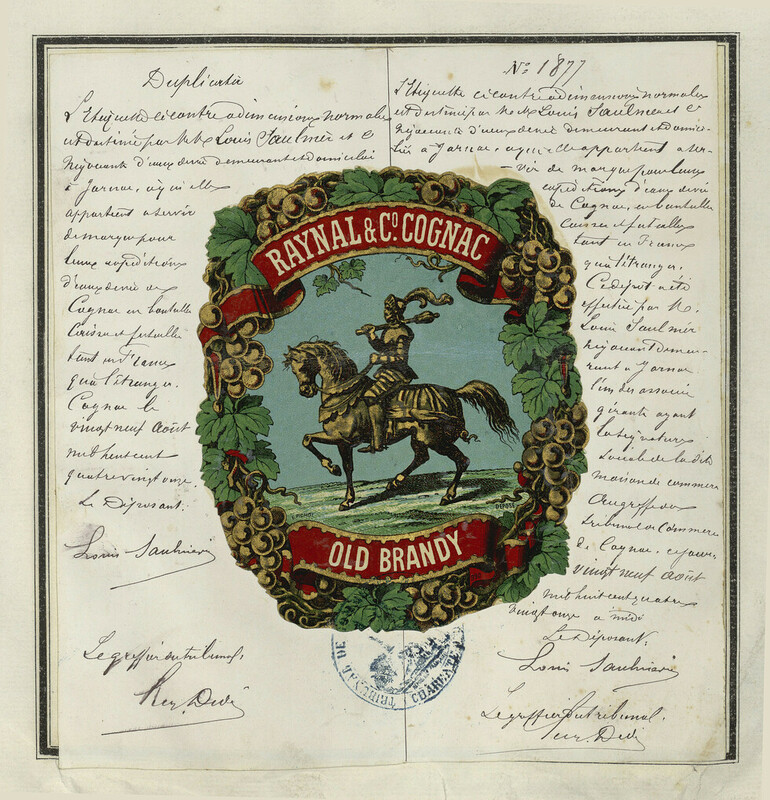 Duplicata
L'Etiquette ci contre a dimensions normales
est destinée par M. Louis Saulnier et Cie
Négociants d'eaux de vie demeurant et domiciliés
à Jarnac, à qui elle
appartient a servir
de marque pour
leurs expéditions
d'eaux de vie de
Cognac en bouteilles
Caisses et futailles
tant en France
qu'à l'étranger.
Cognac le
vingt neuf Août
mil huit cent
quatre vingt onze
Le Déposant:
Louis Saulnier
Le greffier du tribunal,
No 1877
L'Etiquette ci contre a dimensions normales
est destinée par M. Louis Saulnier et Cie
Négociants d'eaux de vie demeurant et domici-
liés à Jarnac, à qui elle appartient a ser-
vir de marque pour leurs
expéditions d'eaux de vie
de Cognac, en bouteilles
Caisses et futailles
tant en France
qu'à l'étranger.
Ce dépôt a été
effectué par M.
Louis Saulnier
Négociant demeu-
rant à Jarnac
l'un des associés
gérants ayant
la signature
sociale de la dite
maison de commerce
Au greffe du
tribunal de Commerce
de Cognac, ce jour
vingt neuf Août
mil huit cent quatre
vingt onze à midi
Le Déposant:
Louis Saulnier
Le greffier du tribunal,
RAYNAL & Co. COGNAC
DÉPOSÉ
OLD BRANDY
TRIBUNAL DE
CHARENTE